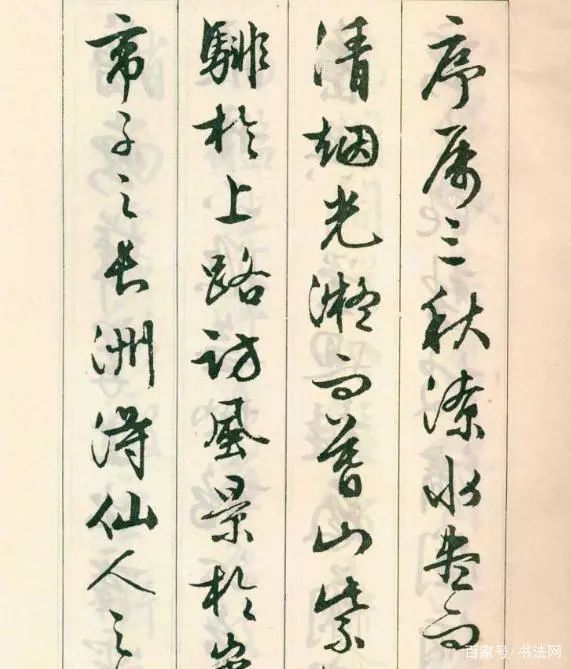 序属三秋潦水尽而
清烟光凝而暮山紫
騑於上路訪風景於
帝子之長洲得仙人之
百家号/书法网